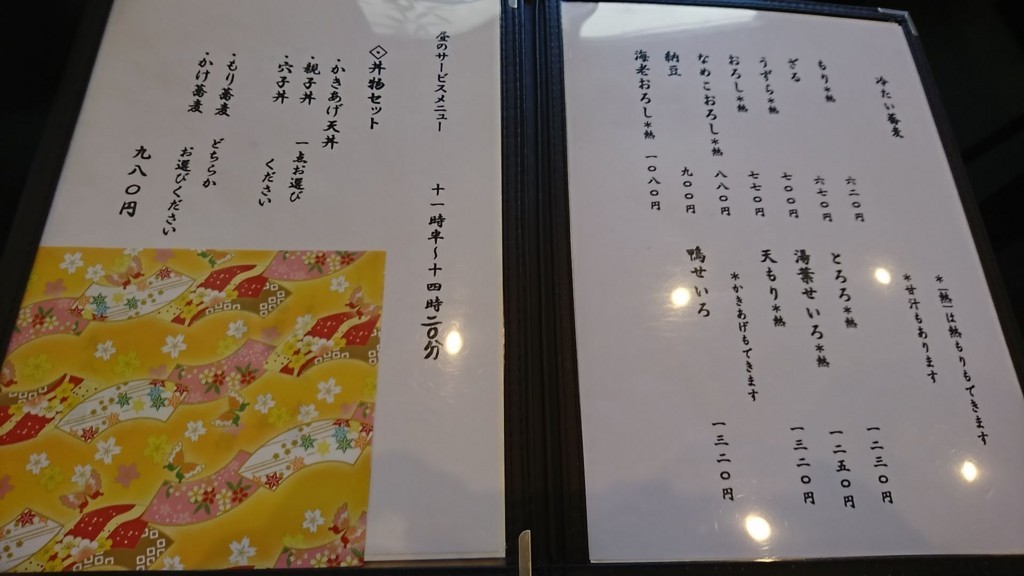 冷たい蕎麦
もり*熱 六二〇円
ざる 六七〇円
うずら*熱 七〇〇円
おろし*熱 七七〇円
なめこおろし*熱 八八〇円
納豆 九〇〇円
海老おろし*熱 一〇八〇円
*「熱」は熱もりもできます
*甘汁もあります
とろろ*熱 一二三〇円
湯葉せいろ*熱 一二五〇円
天もり*熱 一三二〇円
*かきあげもできます
鴨せいろ 一三二〇円
昼のサービスメニュー 十一時半~十四時二〇分
◇丼物セット
・かきあげ天丼
・親子丼 一点お選び
・穴子丼 ください
・もり蕎麦 どちらか
・かけ蕎麦 お選びください
九八〇円